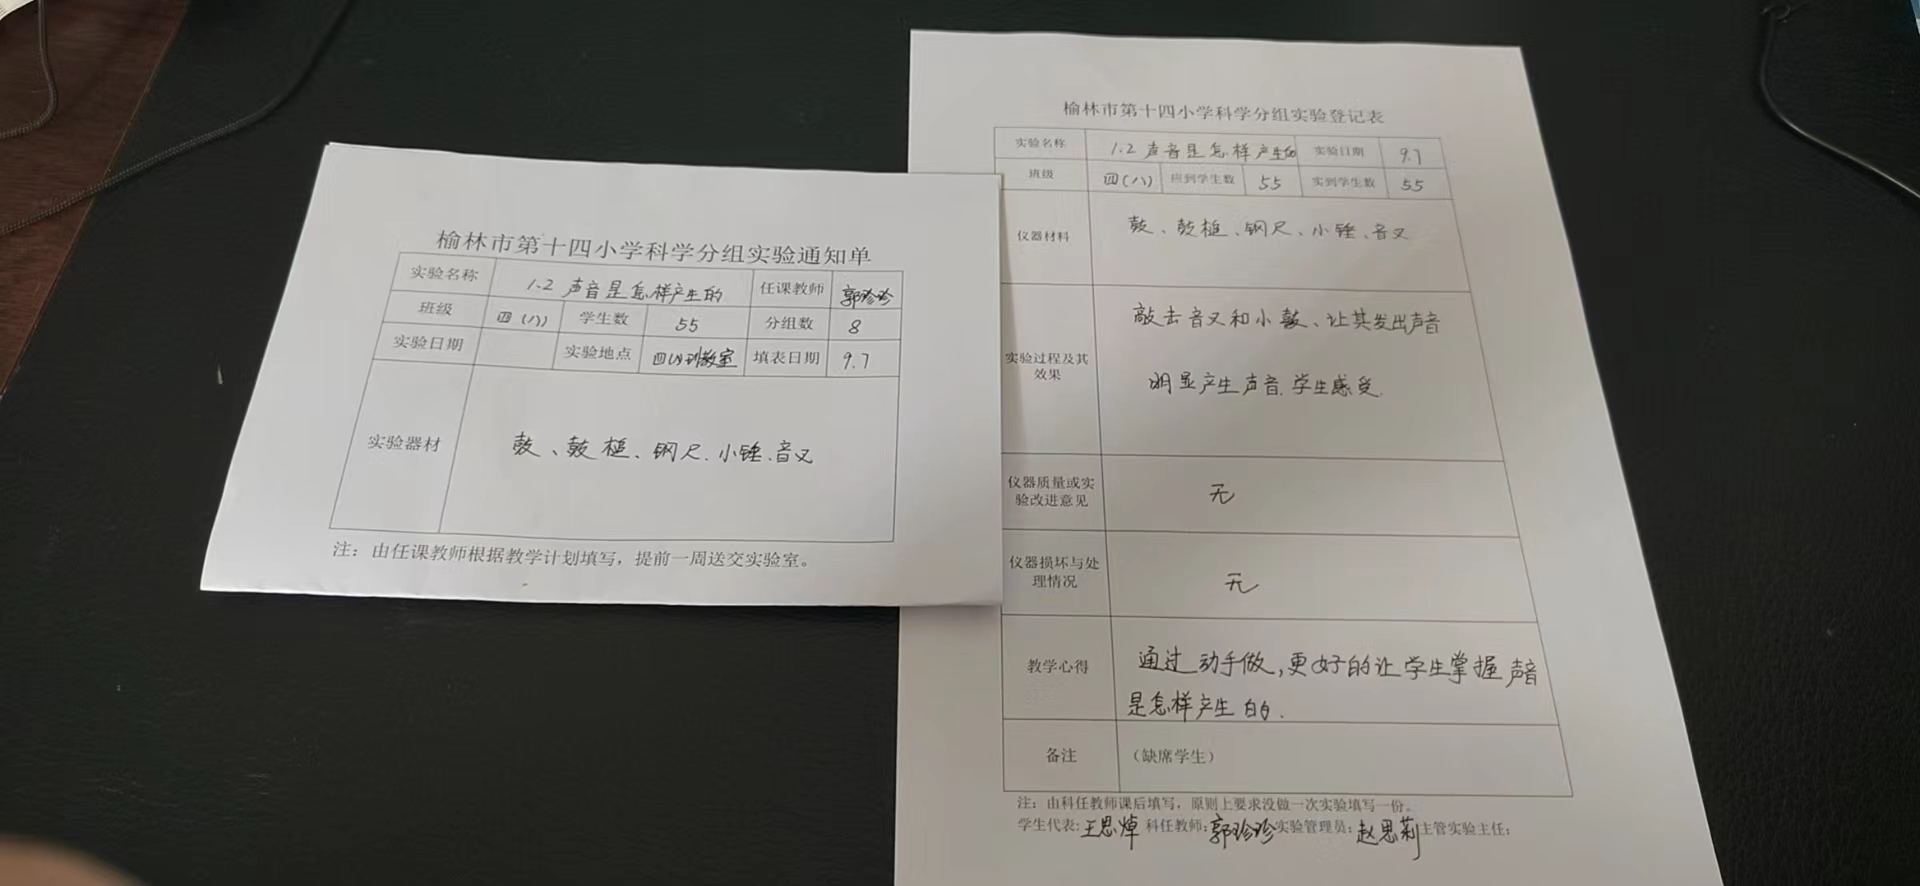 榆林市第十四小学科学分组实验通知单
实验名称 1.2 声音是怎样产生的 任课教师 郭珍珍
班级 四(八) 学生数 55 分组数 8
实验日期 实验地点 四(八)班教室 填表日期 9.7
实验器材 鼓、鼓槌、钢尺、小锤、音叉
注：由任课教师根据教学计划填写，提前一周送交实验室。
榆林市第十四小学科学分组实验登记表
实验名称 1.2 声音是怎样产生的 实验日期 9.7
班级 四(八) 应到学生数 55 实到学生数 55
仪器材料 鼓、鼓槌、钢尺、小锤、音叉
实验过程及其
效果
敲击音叉和小鼓、让其发出声音
明显产生声音.学生感受.
仪器质量或实
验改进意见
无
仪器损坏与处
理情况
无
教学心得 通过动手做,更好的让学生掌握声音
是怎样产生的.
备注 （缺席学生）
注：由科任教师课后填写，原则上要求没做一次实验填写一份。
学生代表:王思焯 科任教师:郭珍珍 实验管理员:赵思莉 主管实验主任: